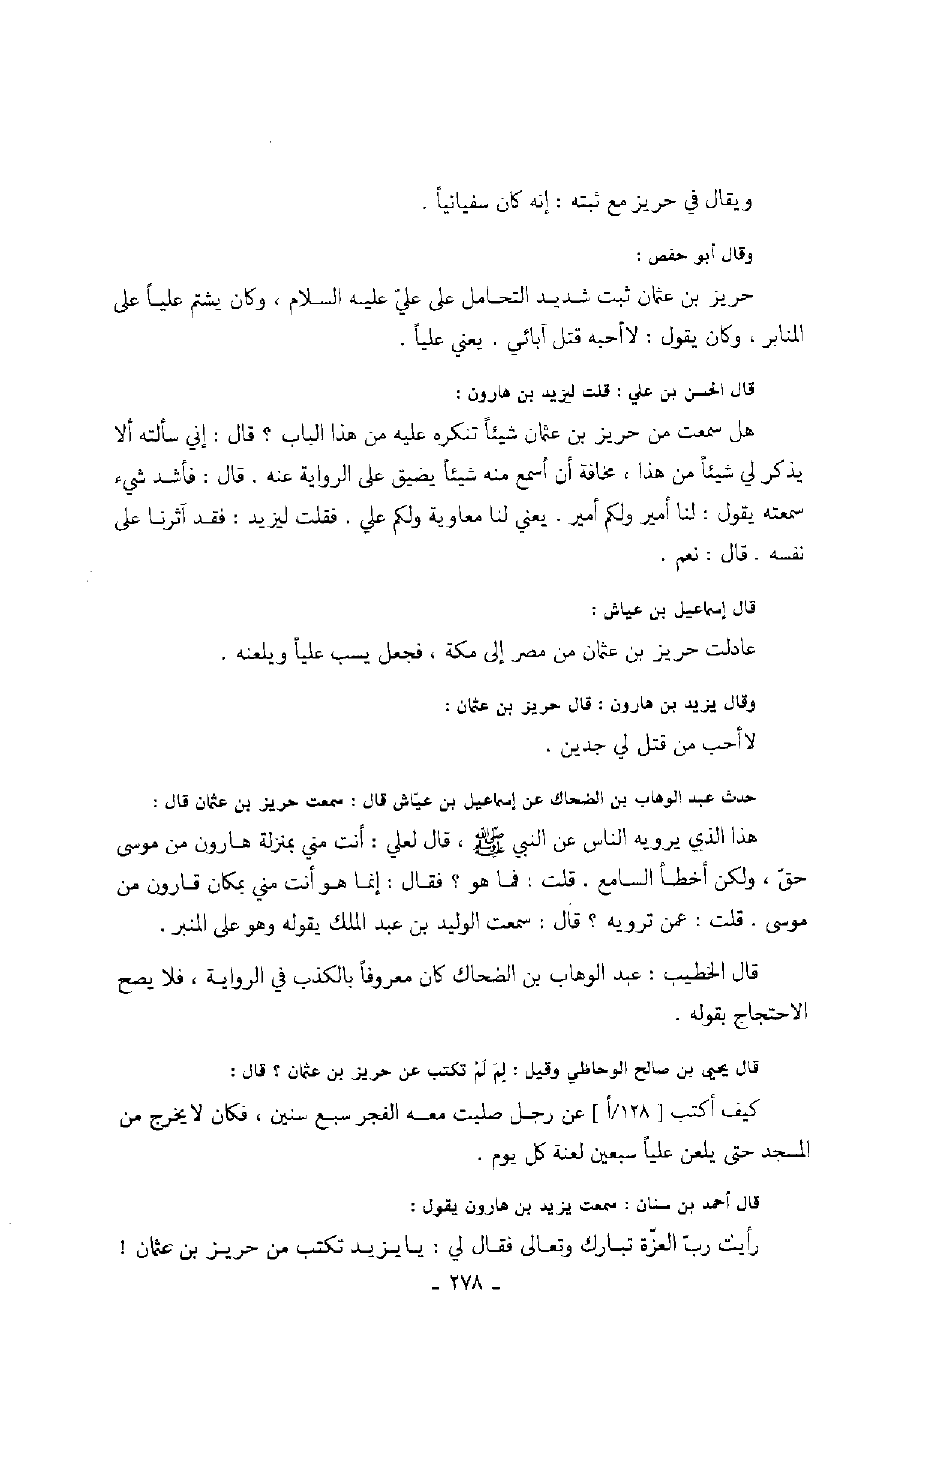 ويقال في حريز مع ثبته : إنه كان سفيانياً .
وقال أبو حفص :
حريز بن عثمان ثبت شديد التحامل على عليّ عليه السلام ، وكان يشتم علياً على
المنابر ، وكان يقول : لا أحبه قتل آبائي . يعني علياً .
قال الحسن بن علي : قلت ليزيد بن هارون :
هل سمعت من حريز بن عثمان شيئاً تنكره عليه من هذا الباب ؟ قال : إني سألته ألا
يذكر لي شيئاً من هذا ، مخافة أن أسمع منه شيئاً يضيق علي الرواية عنه . قال : فأشد شيء
سمعته يقول : لنا أمير ولكم أمير . يعني لنا معاوية ولكم علي . فقلت ليزيد : فقد آثرنا على
نفسه . قال : نعم .
قال إسماعيل بن عياش :
عادلت حريز بن عثمان من مصر إلى مكة ، فجعل يسب علياً ويلعنه .
وقال يزيد بن هارون : قال حريز بن عثمان :
لا أُحب من قتل لي جدين .
حدث عبد الوهاب بن الضحاك عن إسماعيل بن عيّاش قال : سمعت حريز بن عثمان قال :
هذا الذي يرويه الناس عن النبي ﷺ ، قال لعلي : أنت مني بمنزلة هارون من موسى
حقّ ، ولكن أخطأ السامع . قلت : فما هو ؟ فقال : إنما هو أنت مني بمكان قارون من
موسى . قلت : عمن ترويه ؟ قال : سمعت الوليد بن عبد الملك يقوله وهو على المنبر .
قال الخطيب : عبد الوهاب بن الضحاك كان معروفاً بالكذب في الرواية ، فلا يصح
الاحتجاج بقوله .
قال يحيى بن صالح الوحاظي وقيل : لِمَ لَمْ تكتب عن حريز بن عثمان ؟ قال :
كيف أكتب [ ١٢٨/أ ] عن رجل صليت معه الفجر سبع سنين ، فكان لا يخرج من
المسجد حتى يلعن علياً سبعين لعنة كل يوم .
قال أحمد بن سنان : سمعت يزيد بن هارون يقول :
رأيت ربّ العزّة تبارك وتعالى فقال لي : يا يزيد تكتب من حريز بن عثمان !
- ٢٧٨ -